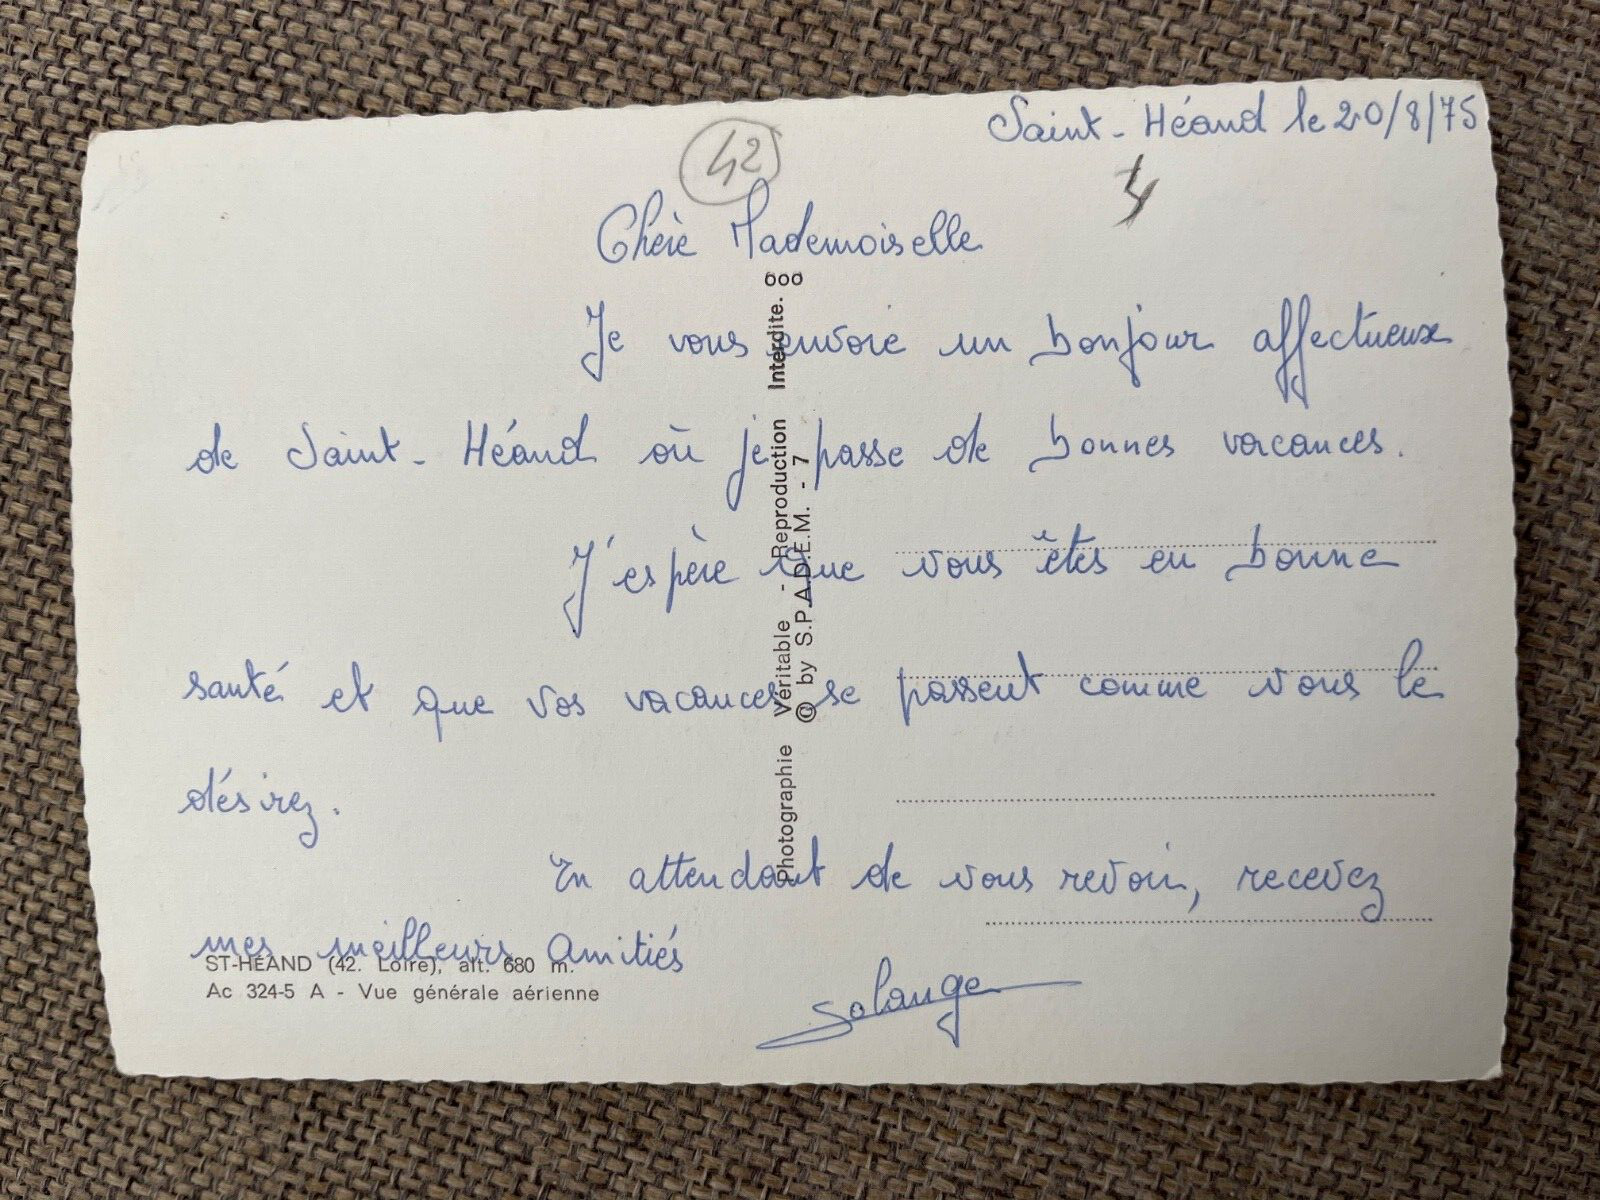 Saint-Héand le 20/8/75
42
Chère Mademoiselle
Je vous envoie un bonjour affectueux
de Saint-Héand où je passe de bonnes vacances.
J'espère que vous êtes en bonne
santé et que vos vacances se passent comme vous le
désirez.
En attendant de vous revoir, recevez
mes meilleurs Amitiés
Solange
ST-HÉAND (42. Loire), alt. 680 m.
Ac 324-5 A - Vue générale aérienne
Photographie Véritable - Reproduction Interdite.
© by S.P.A.D.E.M. - 7